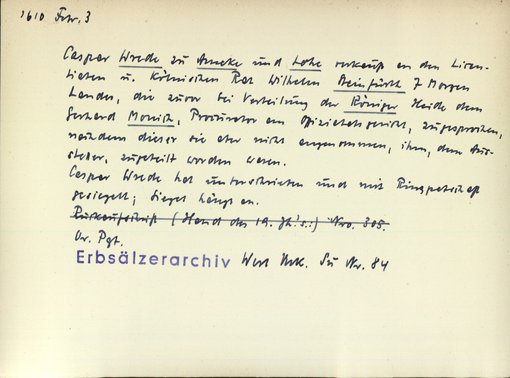 1610 Febr. 3
Caspar Wrede zu Amecke und Lohe verkauft an den Licen-
tiaten u. Kölnischen Rat Wilhelm Beinfurth 7 Morgen
Landes, die zuvor bei Verteilung der Röninger Heide dem
Gerhard Monich, Procurator am Offizialatsgericht, zugesprochen,
nachdem dieser sie aber nicht angenommen, ihm, dem Aus-
steller, zugeteilt worden waren.
Caspar Wrede hat unterschrieben und mit Ringpetschaft
gesiegelt; Siegel hängt an.
(Hand des 19. Jh's.:) Nro. 305.
Or. Pgt.
Erbsälzerarchiv Werl Urk. Nr. 84